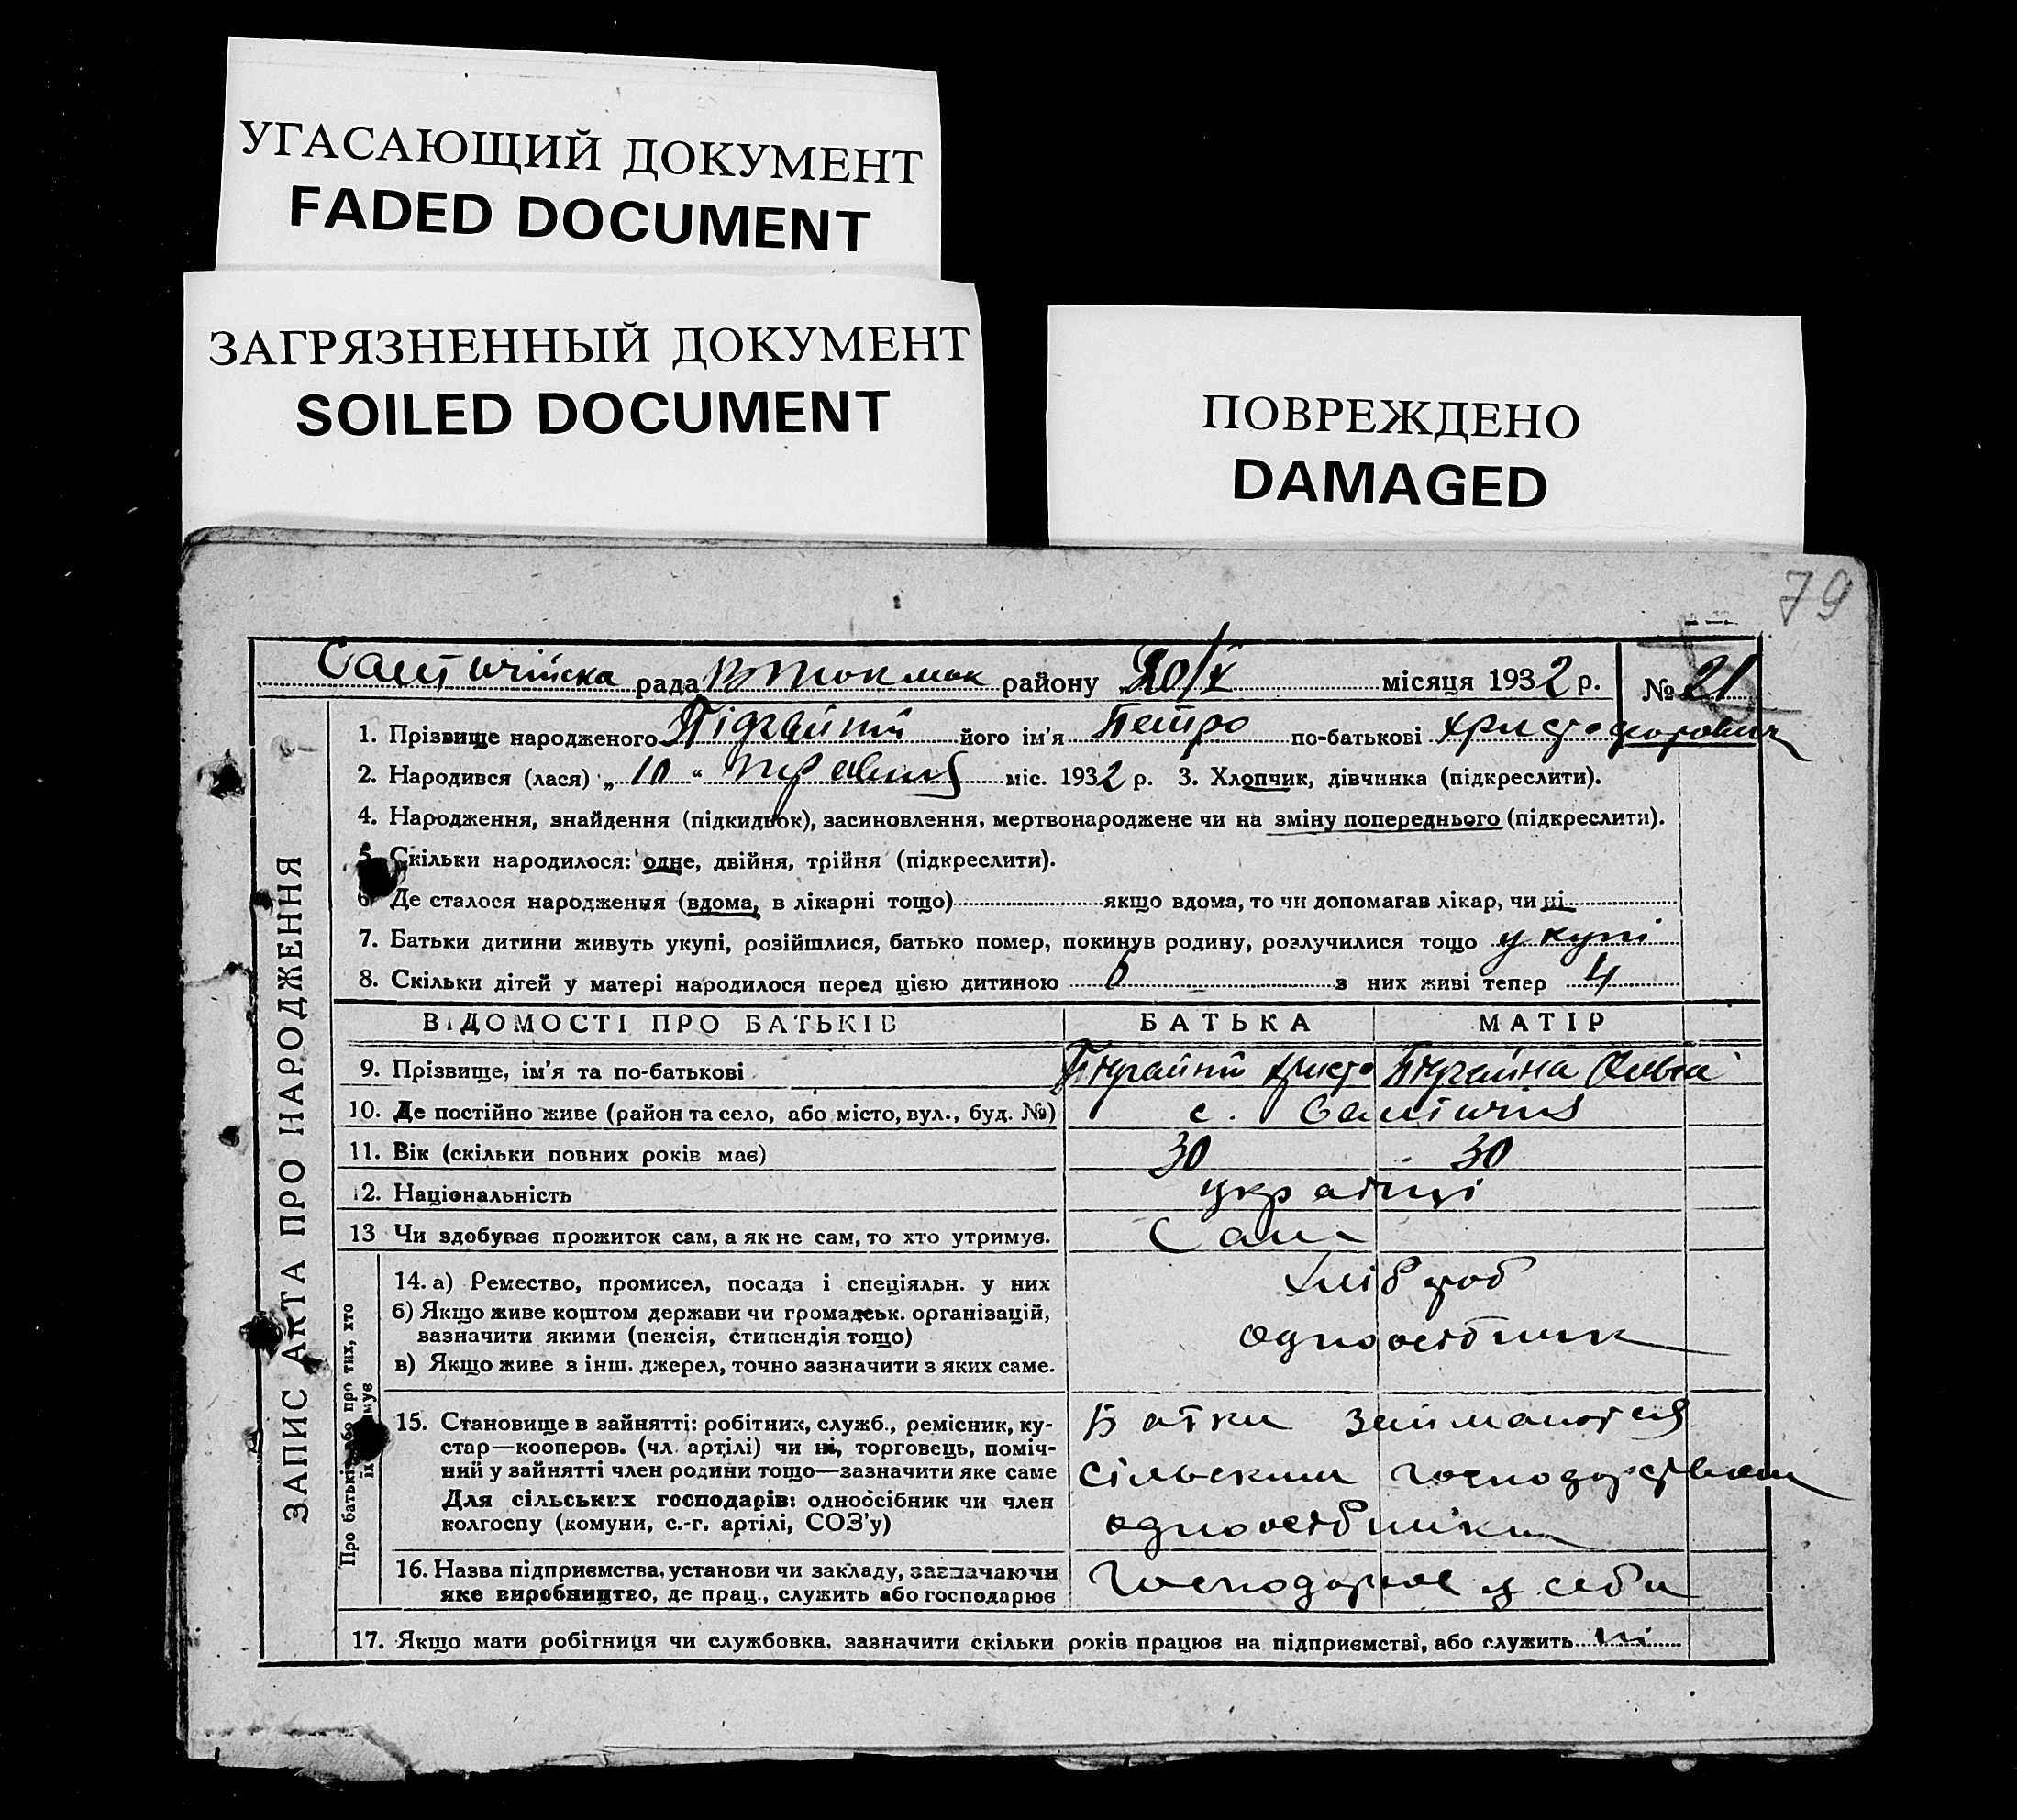 УГАСАЮЩИЙ ДОКУМЕНТ
FADED DOCUMENT
ЗАГРЯЗНЕННЫЙ ДОКУМЕНТ
SOILED DOCUMENT
ПОВРЕЖДЕНО
DAMAGED
79
рада В Токмак району 20/X місяця 1932 р. № 21
ЗАПИС АКТА ПРО НАРОДЖЕННЯ
1. Прізвище народженого Підгайний його ім'я Петро по-батькові Христофорович
2. Народився (лася) „ 10 “ міс. 1932 р. 3. Хлопчик, дівчинка (підкреслити).
4. Народження, знайдення (підкидьок), засиновлення, мертвонароджене чи на зміну попереднього (підкреслити).
5. Скільки народилося: одне, двійня, трійня (підкреслити).
6. Де сталося народження (вдома, в лікарні тощо) якщо вдома, то чи допомагав лікар, чи ні
7. Батьки дитини живуть укупі, розійшлися, батько помер, покинув родину, розлучилися тощо у купі
8. Скільки дітей у матері народилося перед цією дитиною 6 з них живі тепер 4
ВІДОМОСТІ ПРО БАТЬКІВ БАТЬКА МАТІР
9. Прізвище, ім'я та по-батькові Підгайний Христо Підгайна
10. Де постійно живе (район та село, або місто, вул., буд. №) с.
11. Вік (скільки повних років має) 30 30
12. Національність українці
13 Чи здобуває прожиток сам, а як не сам, то хто утримує. Сам
Про батьків або про тих, хто їх
14. а) Ремество, промисел, посада і спеціяльн. у них Хлібороб
б) Якщо живе коштом держави чи громадськ. організацій,
зазначити якими (пенсія, стипендія тощо) одноосібник
в) Якщо живе з інш. джерел, точно зазначити з яких саме.
15. Становище в зайнятті: робітник, служб., ремісник, ку- Батки займаются
стар—кооперов. (чл. артілі) чи ні, торговець, поміч-
ний у зайнятті член родини тощо—зазначити яке саме сільским господарством
Для сільських господарів: одноосібник чи член
колгоспу (комуни, с.-г. артілі, СОЗ'у) одноосібники
16. Назва підприємства, установи чи закладу, зазначаючи
яке виробництво, де прац., служить або господарює господарює у себи
17. Якщо мати робітниця чи службовка, зазначити скільки років працює на підприємстві, або служить ні